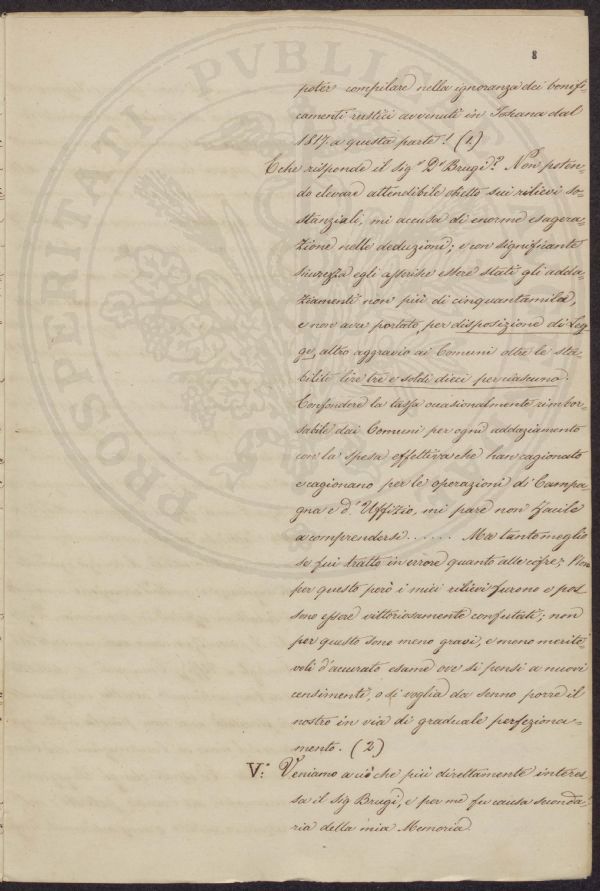 8
poter compilare nella ignoranza dei bonifi-
camenti rustici avvenuti in Toscana dal
1817 a questa parte! (1.)
E che risponde il Sigr Dr Brugi? Non poten-
do elevare attendibile obietto sui rilievi so-
stanziali, mi accusa di enorme esagera-
zione nelle deduzioni; e con significante
sicurezza egli asserisce essere stati gli adda-
ziamenti non più di cinquantamila,
e non aver portato, per disposizione di Leg-
ge, altro aggravio ai Comuni oltre le sta-
bilite lire tre e soldi dieci per ciascuno.
Confondere la tassa occasionalmente rimbor-
sabile dai Comuni per ogni addaziamento
con la spesa effettiva che han cagionato
e cagionano per le operazioni di Campa-
gna e d'Uffizio, mi pare non facile
a comprendersi...... Ma tanto meglio
se fui tratto in errore quanto alle cifre; Non
per questo però i miei rilievi furono e pos-
sono essere vittoriosamente confutati; non
per questo sono meno gravi, e meno merite-
voli d'accurato esame ove si pensi a nuovi
censimenti, o si voglia da senno porre il
nostro in via di graduale perfeziona-
mento. (2)
V.° Veniamo a ciò che più direttamente interes-
sa il Sig Brugi, e per me fu causa seconda-
ria della mia Memoria.
PROSPERITATI PVBLICAE